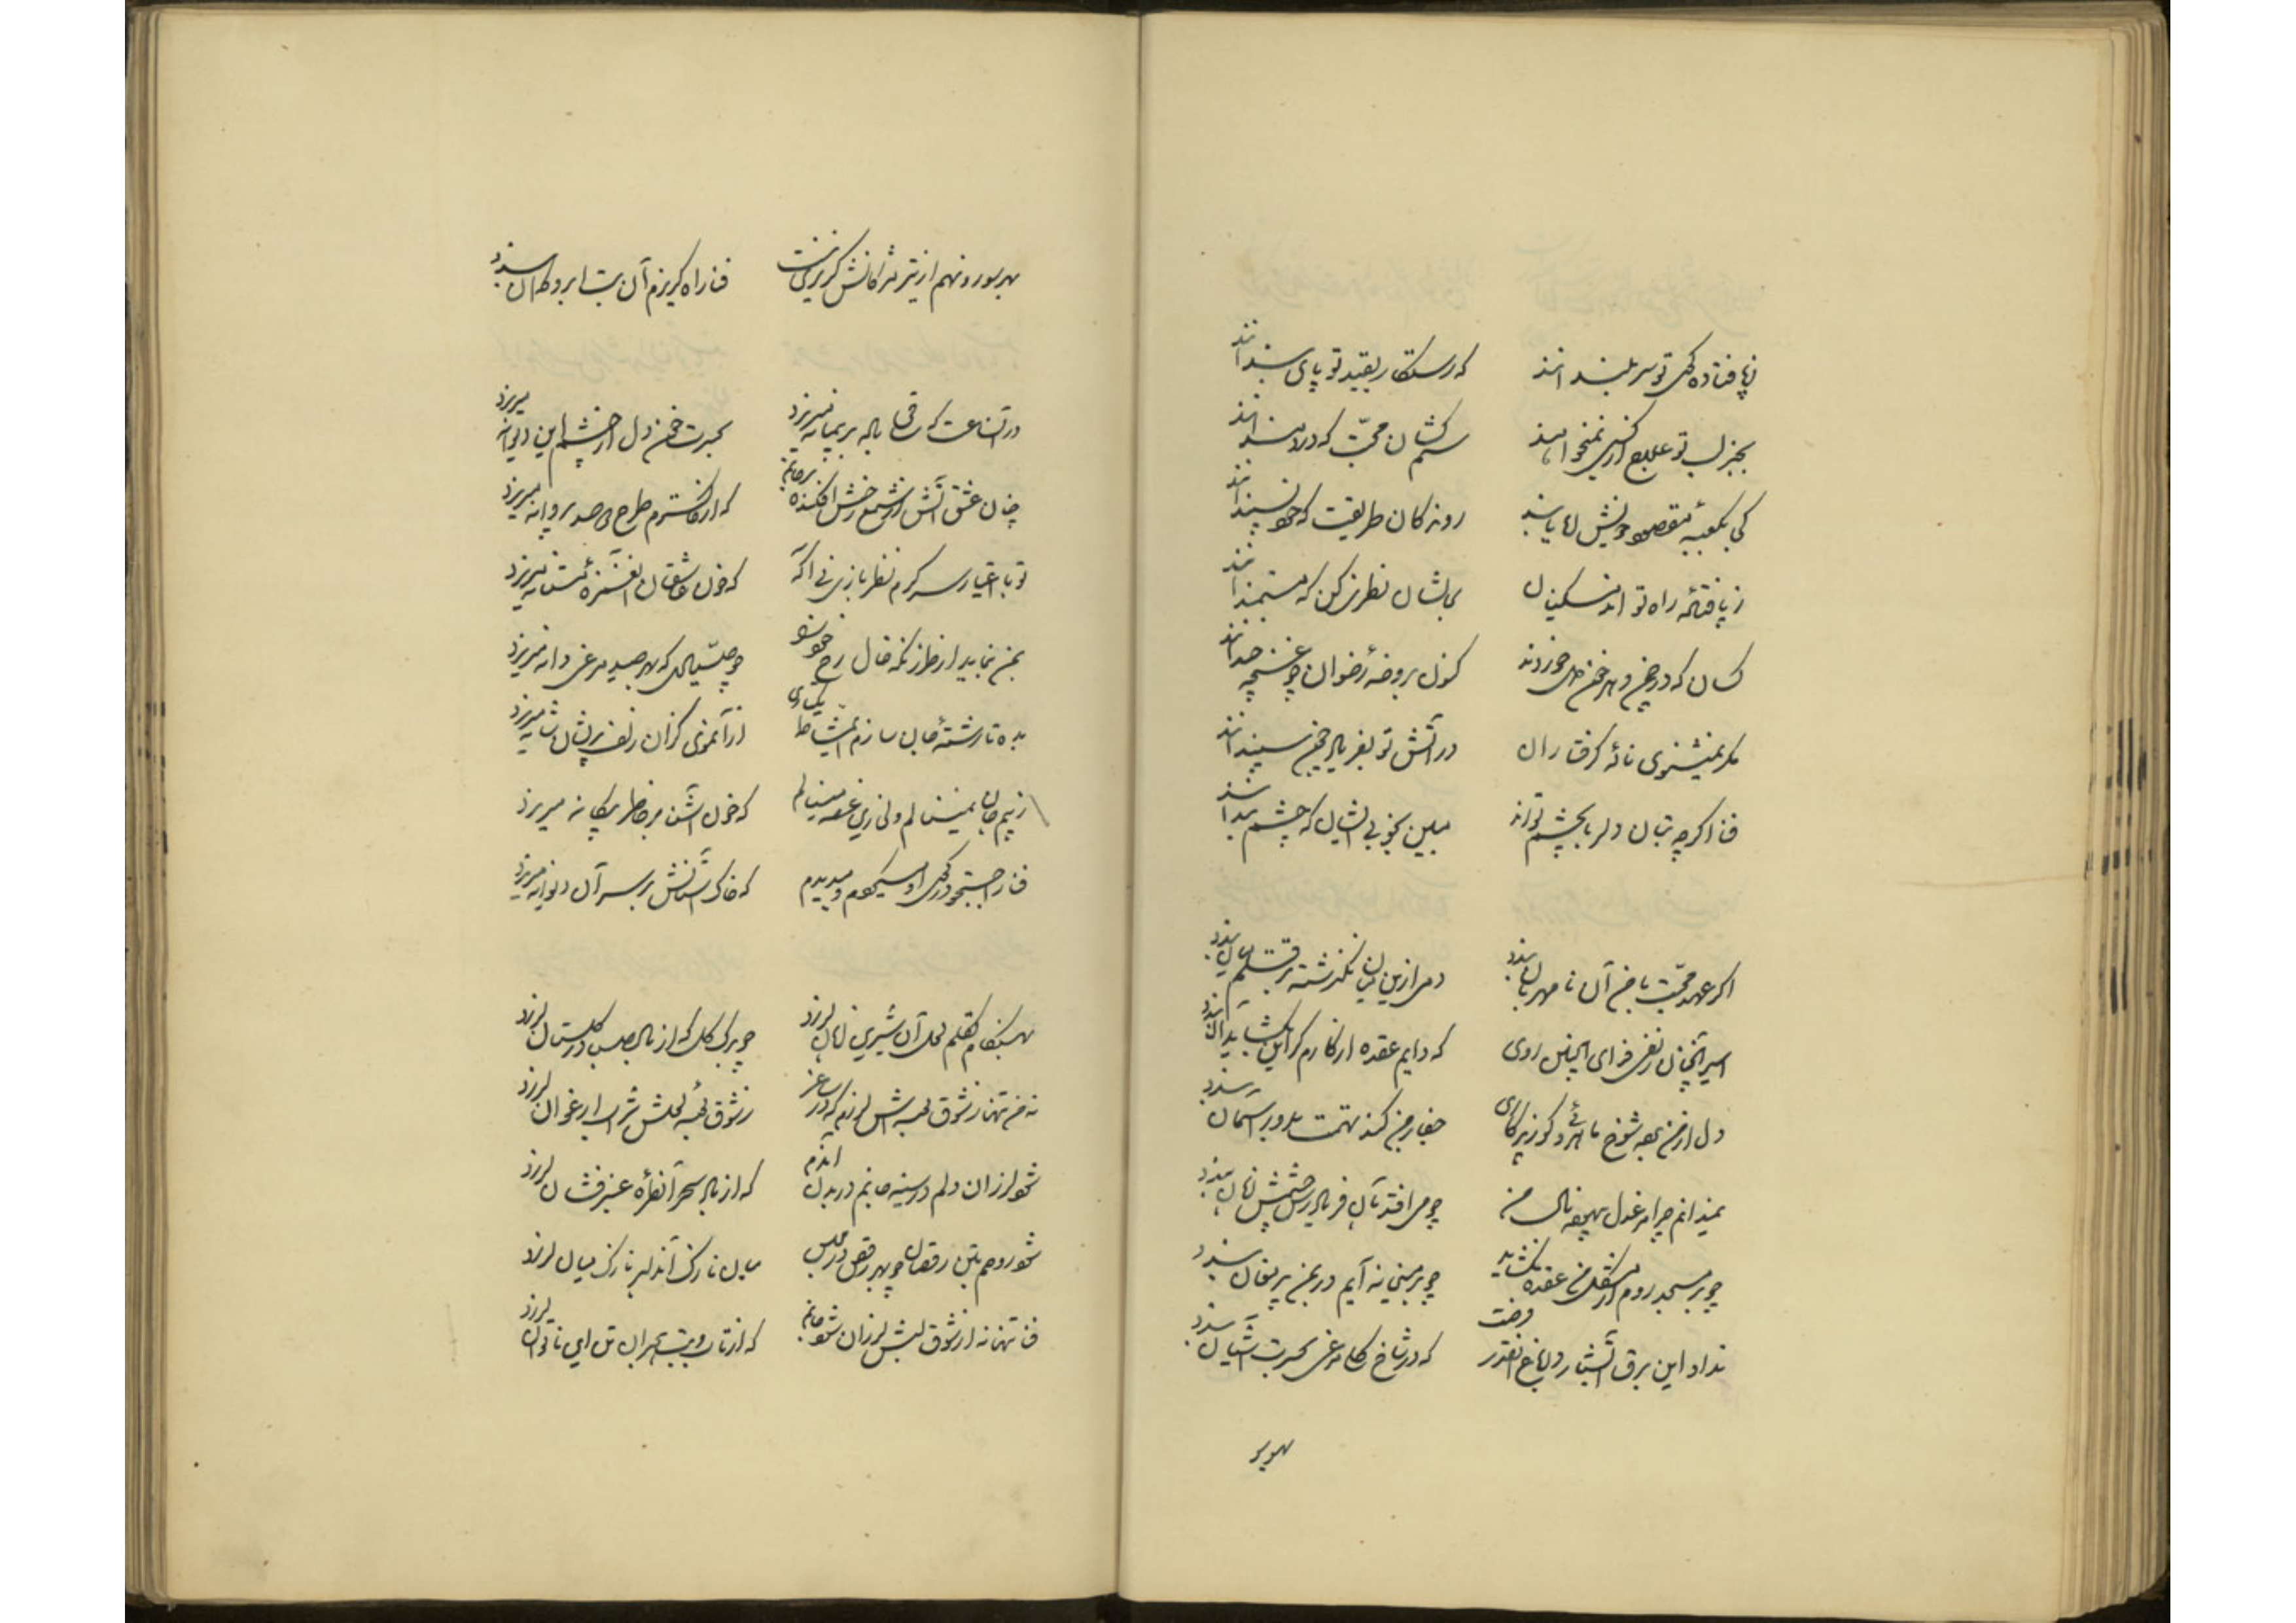 ز پا فتاده کوی تو سر بلند انند
که رستکار بقید تو پای بند انند
بجز لب تو علاج از کسی نمیخواهند
ستم کشان محبت که دردمند انند
کی بکعبهٔ مقصود خویش ره یابند
روندکان طریقت که خود پسند انند
ز پا فتادهٔ راه تو اند مسکینان
بحالشان نظری کن که مستمند انند
کسان که در چمن دهر خون دل خوردند
کنون بروضهٔ رضوان چو غنچه خند انند
مکر نمیشنوی نالهٔ کرفتاران
در آتش تو بفریاد چون سپند انند
فنا اکرچه بتان دلربا بچشم تواند
مبین بخوبی ایشان که چشم بند انند
اکر عهد محبت با من آن نامهربان بندد
دمی ازین میان نکذشته بر قتلم میان بندد
اسیر آنچنان زلفی فدای اینچنین روی
که دایم عقده از کارم کر این بکشاید آن بندد
دل از من برده شوخ
جفا بر من کند تهمت بدور آسمان بندد
نمیدانم چرا مرغ دل بیهوده نال من
چو می افتد بآن فریاد رس چشمش زبان بندد
چو بر مسجد روم از مشکل من عقده نکشاید
چو بر میخانه آیم در بمن پیر مغان بندد
نداد این برق آتشبار در باغ آنقدر فرصت
که در شاخ کلی مرغی بحسرت آشیان بندد
بهر سو
بهر سو رو نهم از تیر مژکانش کریزی نیست
فنا راه کریزم آن بت ابرو کمان بندد
در آنساعت که ساقی باده بر پیمانه میریزد
بحسرت خون دل از چشم این دیوانه میریزد
چنان عشق آتش از شمع رخش افکنده بر جانم
که از خاکسترم طرح صد پروانه میریزد
تو با اغیار سر کرم نظر بازی نی اکه
که خون عاشقان آن غمزهٔ مستانه میریزد
بمن بنماید از طرز نکه خال رخ خود او
چو صیادی که بهر صید مرغی دانه میریزد
بده تا رشتهٔ جان سازم ای مشاطه
از آن موی کزان زلف پریشان شانه میریزد
ز بیم جان نمینالم ولی زین غصه مینالم
که خون آشنا بر خاطر بیکانه میریزد
فنا را جستجو در کوی او میکردم و دیدم
که خاک آستانش بر سر آن دیوانه میریزد
بهنکام تکلم لعل آن شیرین زبان لرزد
چو برک کل که از باد صبا در کلستان لرزد
نه من تنها ز شوق لعبه اش لرزم که در ساغر
ز شوق لعبه لعلش شراب ارغوان لرزد
شود لرزان دلم در سینه جانم در بدن آندم
که از باد سحر آن طرهٔ عنبر فشان لرزد
شود روحم بتن رقصان چو بهر رقص در مجلس
میان نازک آن دلبر نازک میان لرزد
فنا تنها نه از شوق لبش لرزان شود جانم
که از تاب و تب هجران تن این ناتوان لرزد